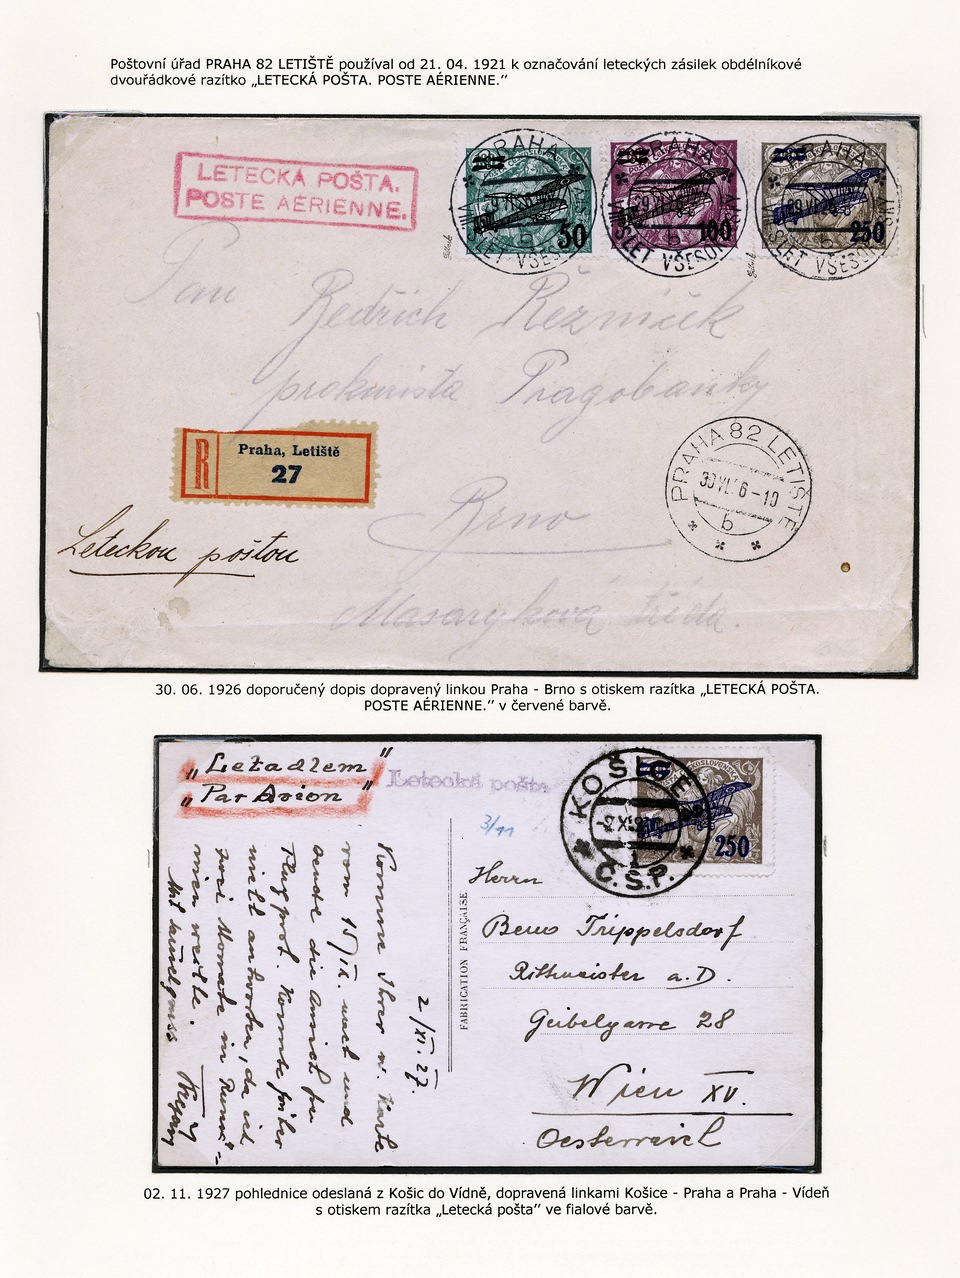 Poštovní úřad PRAHA 82 LETIŠTĚ používal od 21. 04. 1921 k označování leteckých zásilek obdélníkové
dvouřádkové razítko „LETECKÁ POŠTA. POSTE AÉRIENNE.”
LETECKÁ POŠTA.
POSTE AÉRIENNE.
PRAHA
50
PRAHA
100
PRAHA
250
Pan
Bedřich Řezníček
prokurista Pragobanky
Praha, Letiště
R
27
PRAHA 82 LETIŠTĚ
b
Brno
Leteckou poštou
Masarykova třída.
30. 06. 1926 doporučený dopis dopravený linkou Praha - Brno s otiskem razítka „LETECKÁ POŠTA.
POSTE AÉRIENNE.” v červené barvě.
„Letadlem”
„Par Avion”
Letecká pošta
KOŠICE
Č.S.P.
250
3/11
2/XI. 27.
Komme Ihrer w. Karte
vom 15/IX. nach und
sende die Ansicht per
Flugpost. Konnte früher
nicht antworten, da ich
zwei Monate in Rumä-
nien weilte.
FABRICATION FRANÇAISE
Herrn
Benno Trippelsdorf
Rittmeister a. D.
Geibelgasse 28
Wien XV.
Oesterreich
02. 11. 1927 pohlednice odeslaná z Košic do Vídně, dopravená linkami Košice - Praha a Praha - Vídeň
s otiskem razítka „Letecká pošta” ve fialové barvě.